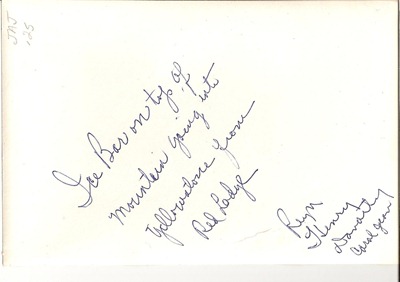 JMJ
.25
Ice Bar on top of
Mountain going into
Yellowstone from
Red Lodge
Henry
Dorothy
Carol Jean